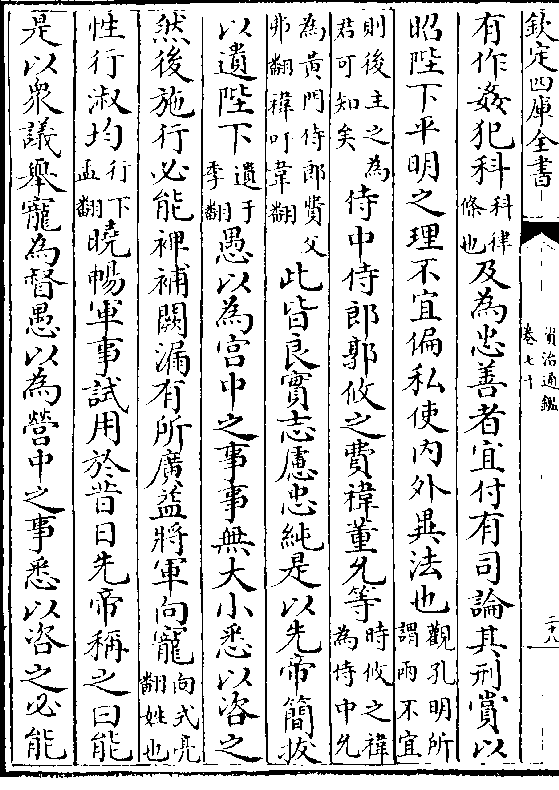 欽定四庫全書
資治通鑑
卷七十
有作姦犯科科律條也及為忠善者宜付有司論其刑賞以
昭陛下平明之理不宜偏私使内外異法也觀孔明所謂兩不宜
則後主之為君可知矣侍中侍郎郭攸之費禕董允等時攸之禕為侍中允
為黃門侍郎費父弗翻禕吁韋翻此皆良實志慮忠純是以先帝簡拔
以遺陛下遺于季翻愚以為宫中之事事無大小悉以咨之
然後施行必能裨補闕漏有所廣益將軍向寵向式亮翻姓也
性行淑均行下孟翻曉暢軍事試用於昔日先帝稱之曰能
是以衆議舉寵為督愚以為營中之事悉以咨之必能